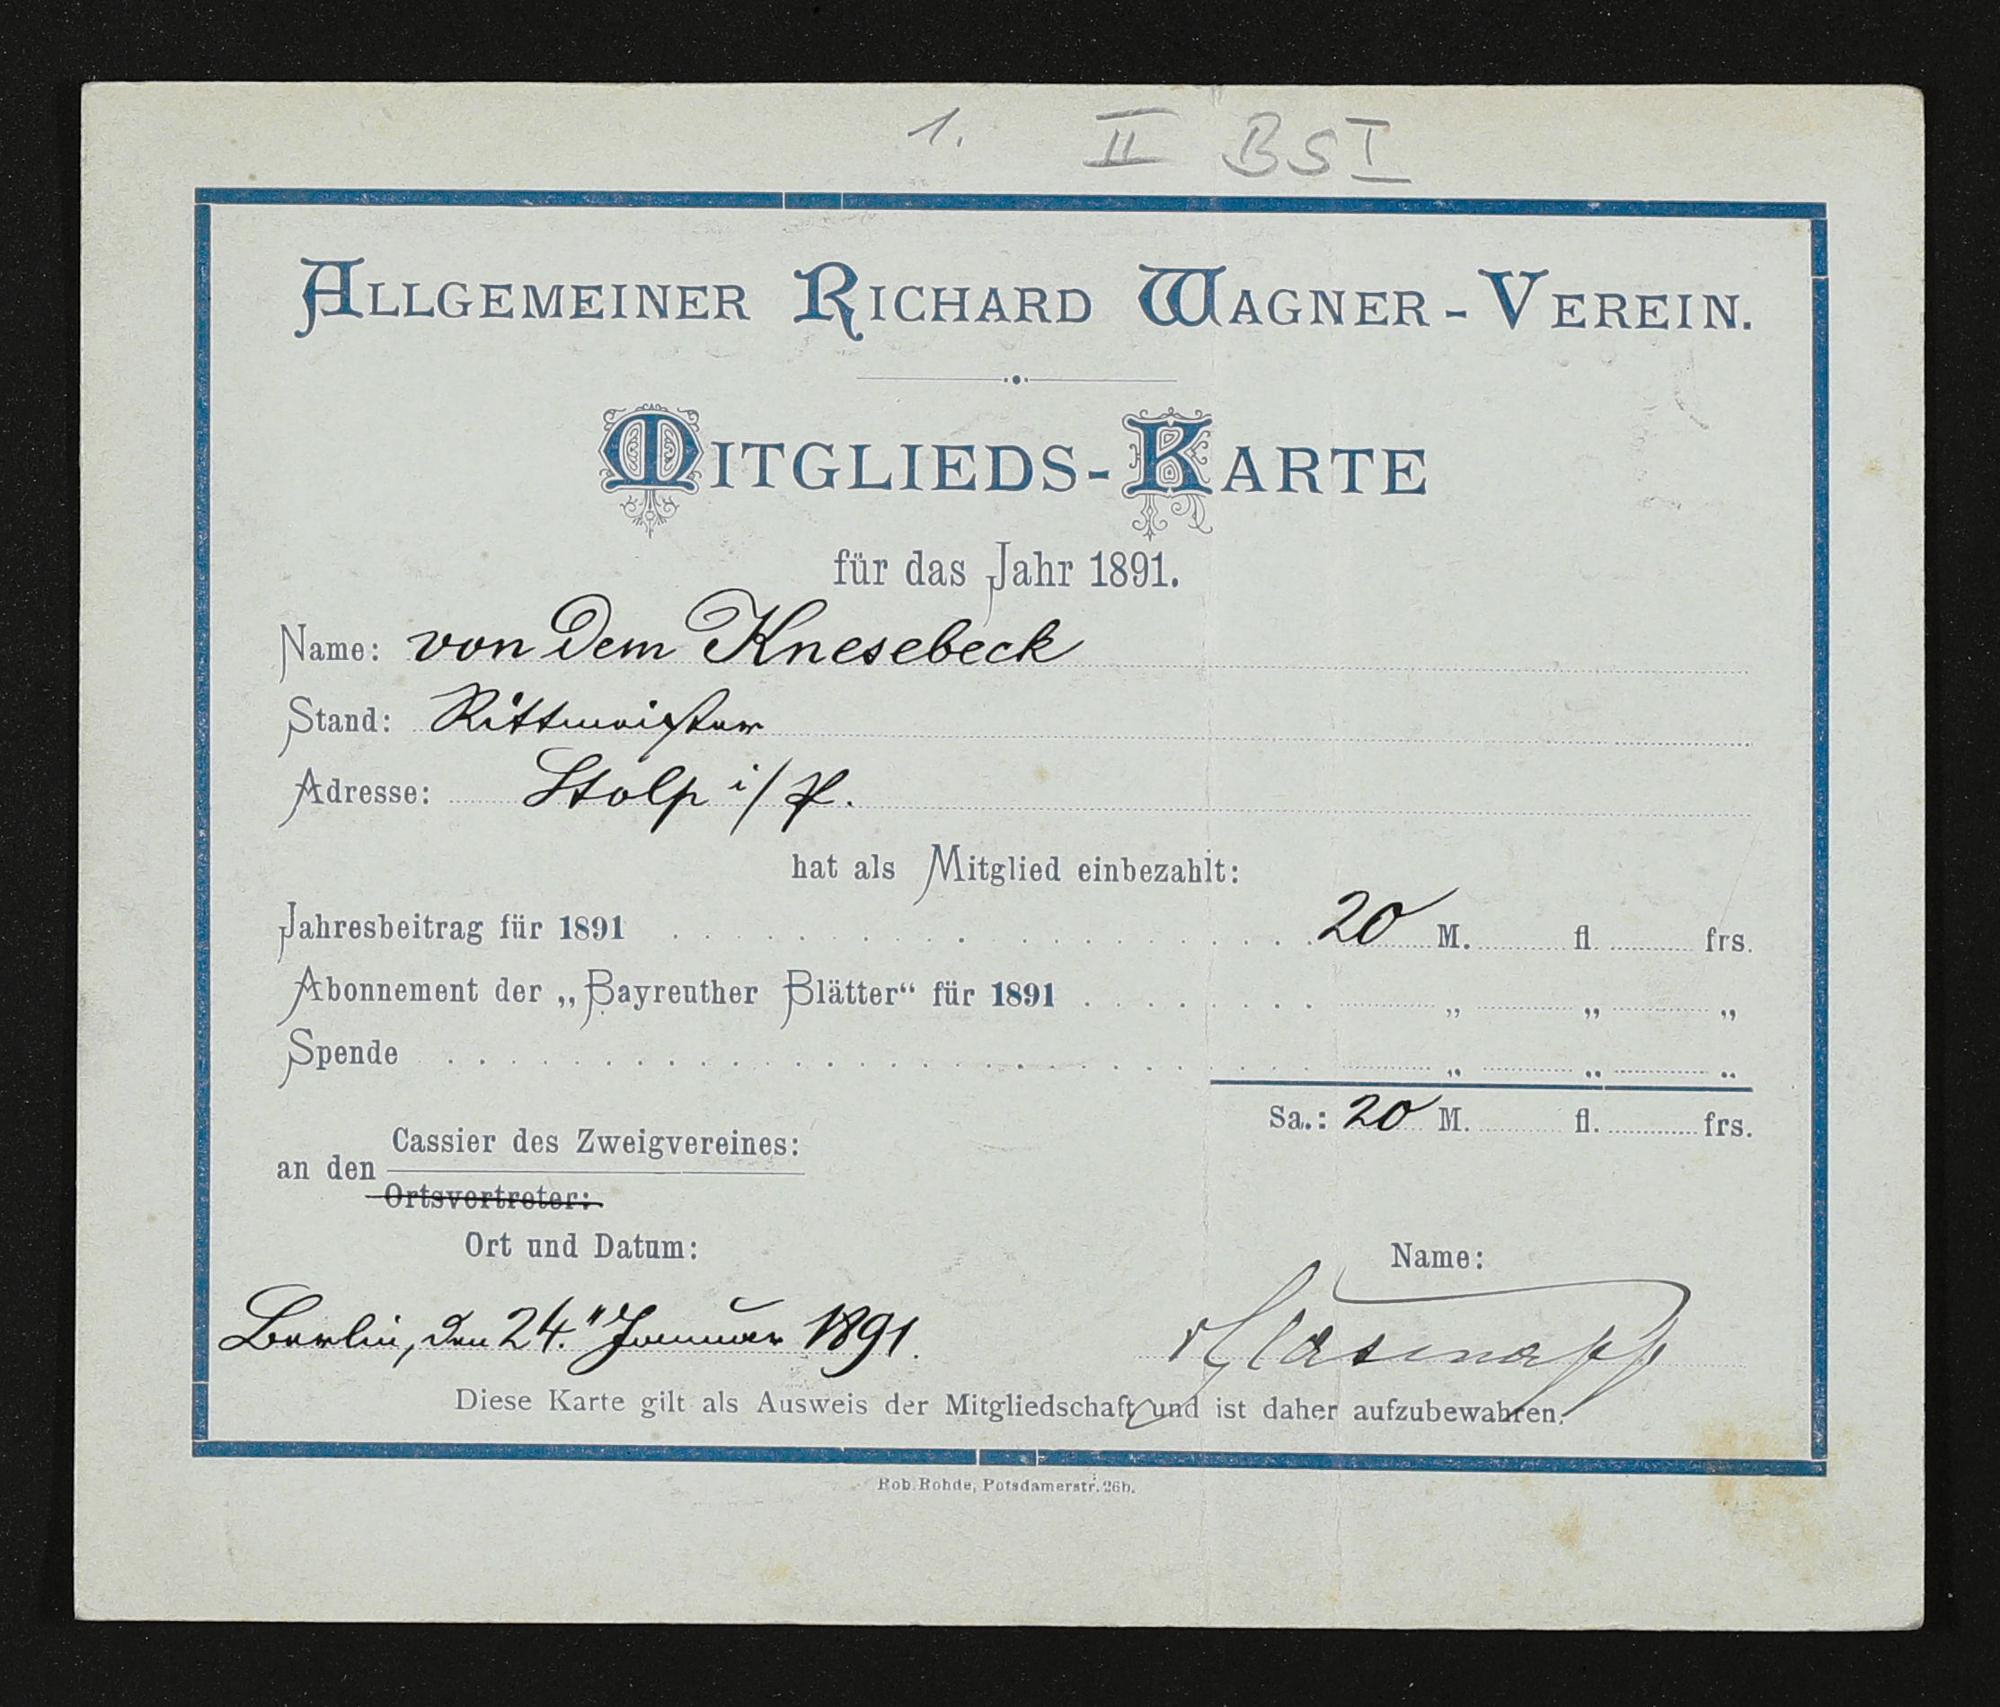 1. II BSI
ALLGEMEINER RICHARD WAGNER-VEREIN.
MITGLIEDS-KARTE
für das Jahr 1891.
Name: von dem Knesebeck
Stand: Rittmeister
Adresse: Stolp i/P.
hat als Mitglied einbezahlt:
Jahresbeitrag für 1891 . . . . . 20 M. fl. frs.
Abonnement der „Bayreuther Blätter“ für 1891 . . . . . „ „ „
Spende . . . . . „ „ „
Sa.: 20 M. fl. frs.
Cassier des Zweigvereines:
an den
Ortsvertreter:
Ort und Datum: Name:
Berlin, den 24." Januar 1891. vGlasenapp
Diese Karte gilt als Ausweis der Mitgliedschaft und ist daher aufzubewahren.
Rob. Rohde, Potsdamerstr. 26b.